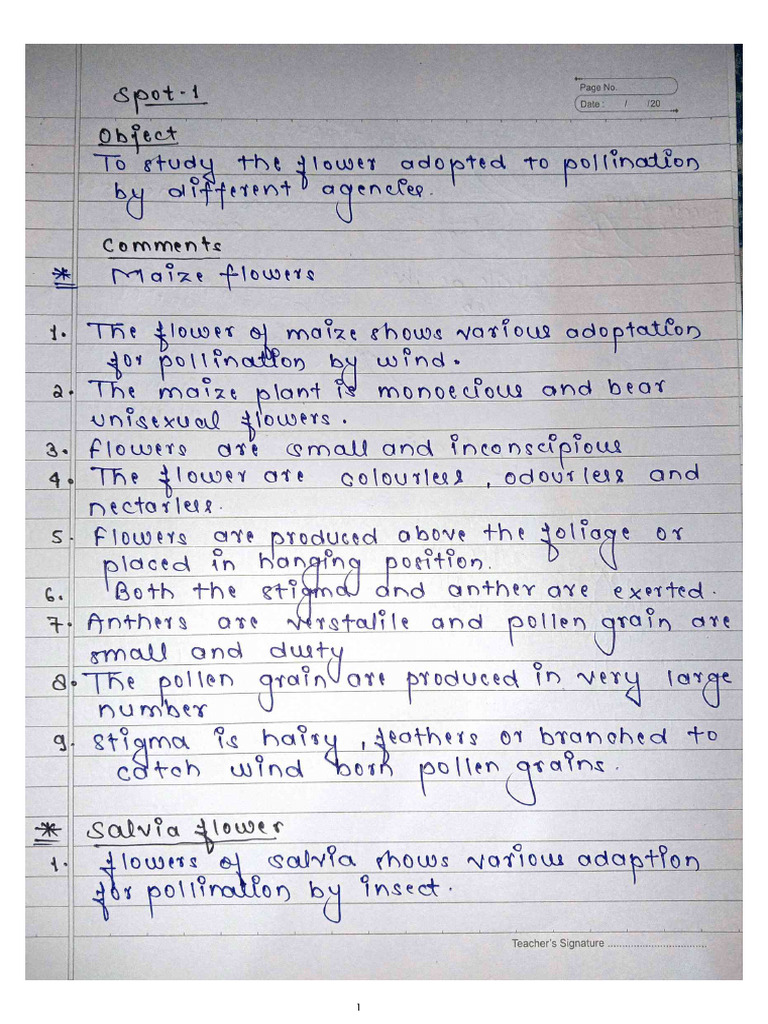 Spot-1
Page No.
Date : / /20
Object
To study the flower adopted to pollination
by different agencies.
Comments
* Maize flowers
1. The flower of maize shows various adoptation
for pollination by wind.
2. The maize plant is monoecious and bear
unisexual flowers.
3. flowers are small and inconscipious
4. The flower are colourless, odourless and
nectarless.
5. Flowers are produced above the foliage or
placed in hanging position.
6. Both the stigma and anther are exerted.
7. Anthers are verstalile and pollen grain are
small and dusty
8. The pollen grain are produced in very large
number
9. stigma is hairy, feathers or branched to
catch wind born pollen grains.
* Salvia flower
1. flowers of salvia shows various adaption
for pollination by insect.
Teacher's Signature ..................................
1